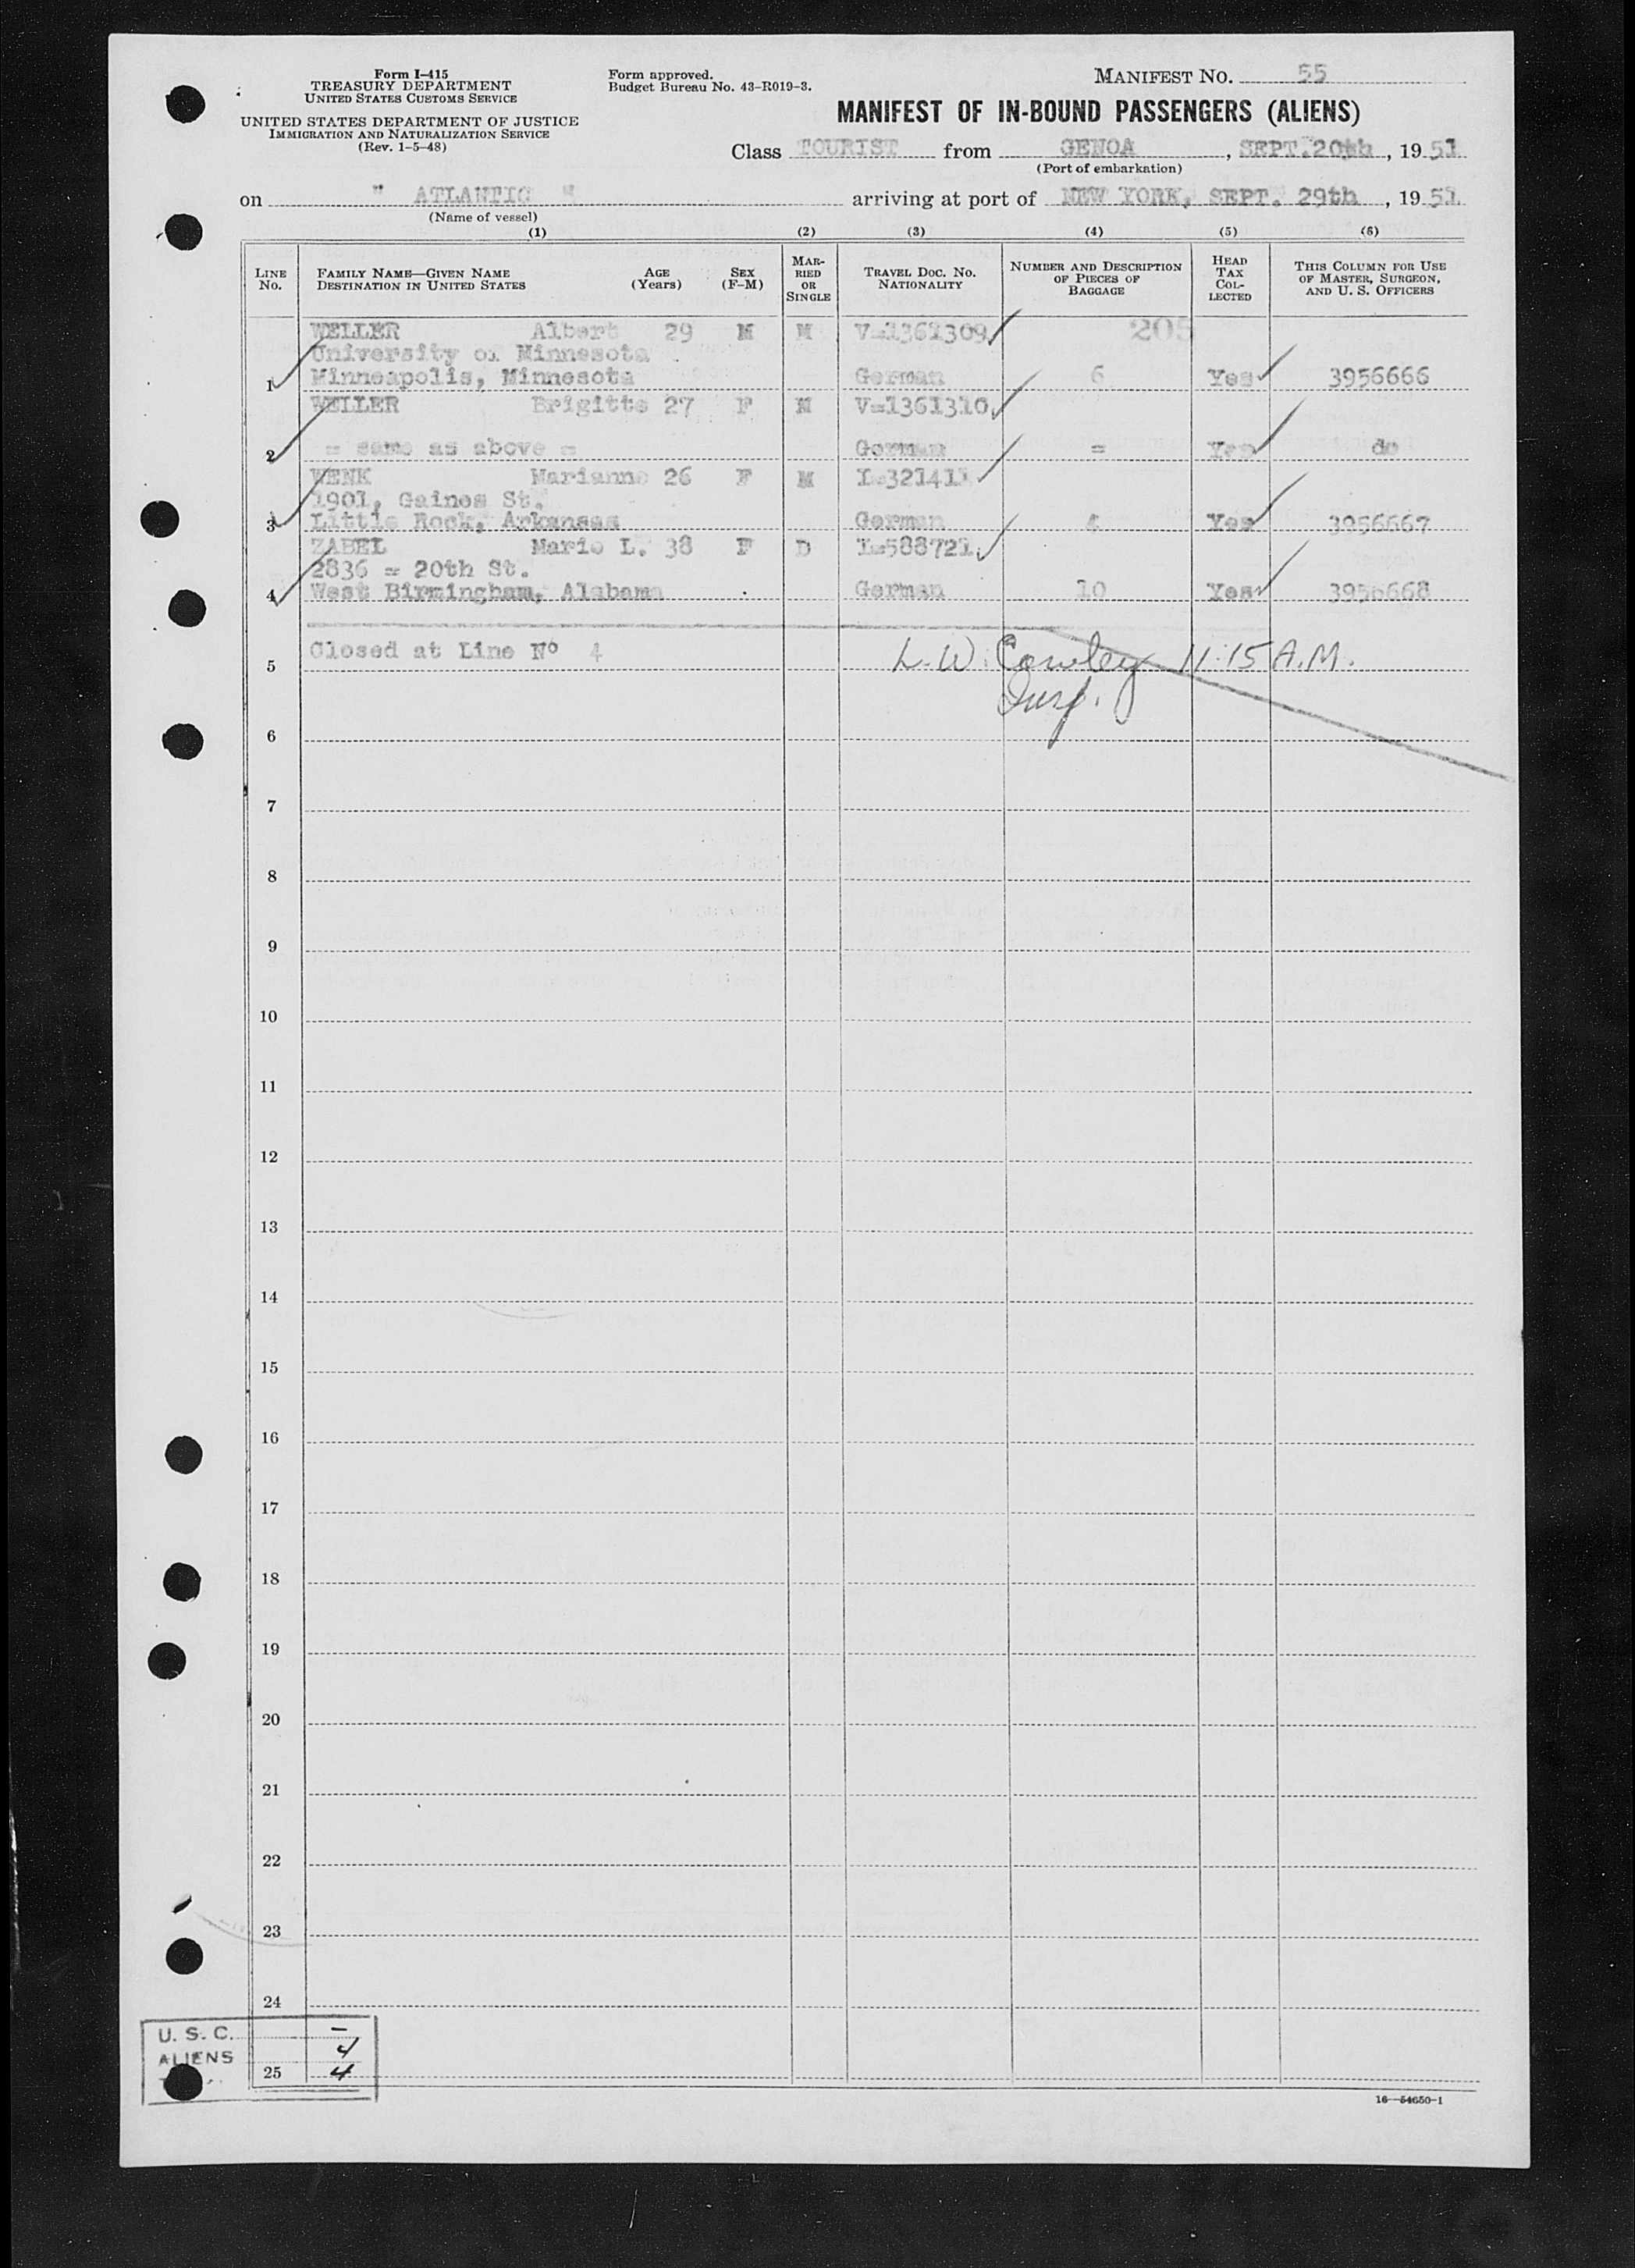 Form I-415
TREASURY DEPARTMENT
UNITED STATES CUSTOMS SERVICE
UNITED STATES DEPARTMENT OF JUSTICE
IMMIGRATION AND NATURALIZATION SERVICE
(Rev. 1-5-48)
Form approved.
Budget Bureau No. 43-R019-3.
MANIFEST NO. 55
MANIFEST OF IN-BOUND PASSENGERS (ALIENS)
Class TOURIST from GENOA, SEPT.20th, 1951
(Port of embarkation)
on " ATLANTIC " arriving at port of NEW YORK, SEPT. 29th, 1951
(Name of vessel)
(1) (2) (3) (4) (5) (6)
LINE No. FAMILY NAME—GIVEN NAME DESTINATION IN UNITED STATES AGE (Years) SEX (F-M) MARRIED OR SINGLE TRAVEL DOC. NO. NATIONALITY NUMBER AND DESCRIPTION OF PIECES OF BAGGAGE HEAD TAX COLLECTED THIS COLUMN FOR USE OF MASTER, SURGEON, AND U. S. OFFICERS
WELLER Albert 29 M M V=1361309 205
University of Minnesota
1 Minneapolis, Minnesota German 6 Yes 3956666
WELLER Brigitte 27 F M V=1361310
2 = same as above = German = Yes do
WENK Marianne 26 F M I=321411
1901, Gaines St.
3 Little Rock, Arkansas German 4 Yes 3956667
ZABEL Marie L. 38 F D I=588721
2836 = 20th St.
4 West Birmingham, Alabama German 10 Yes 3956668
5 Closed at Line Nº 4 L.W. Cowley 11:15 A.M.
Insp.
6
7
8
9
10
11
12
13
14
15
16
17
18
19
20
21
22
23
24
U. S. C. –
ALIENS 4
25 4
16—54650-1